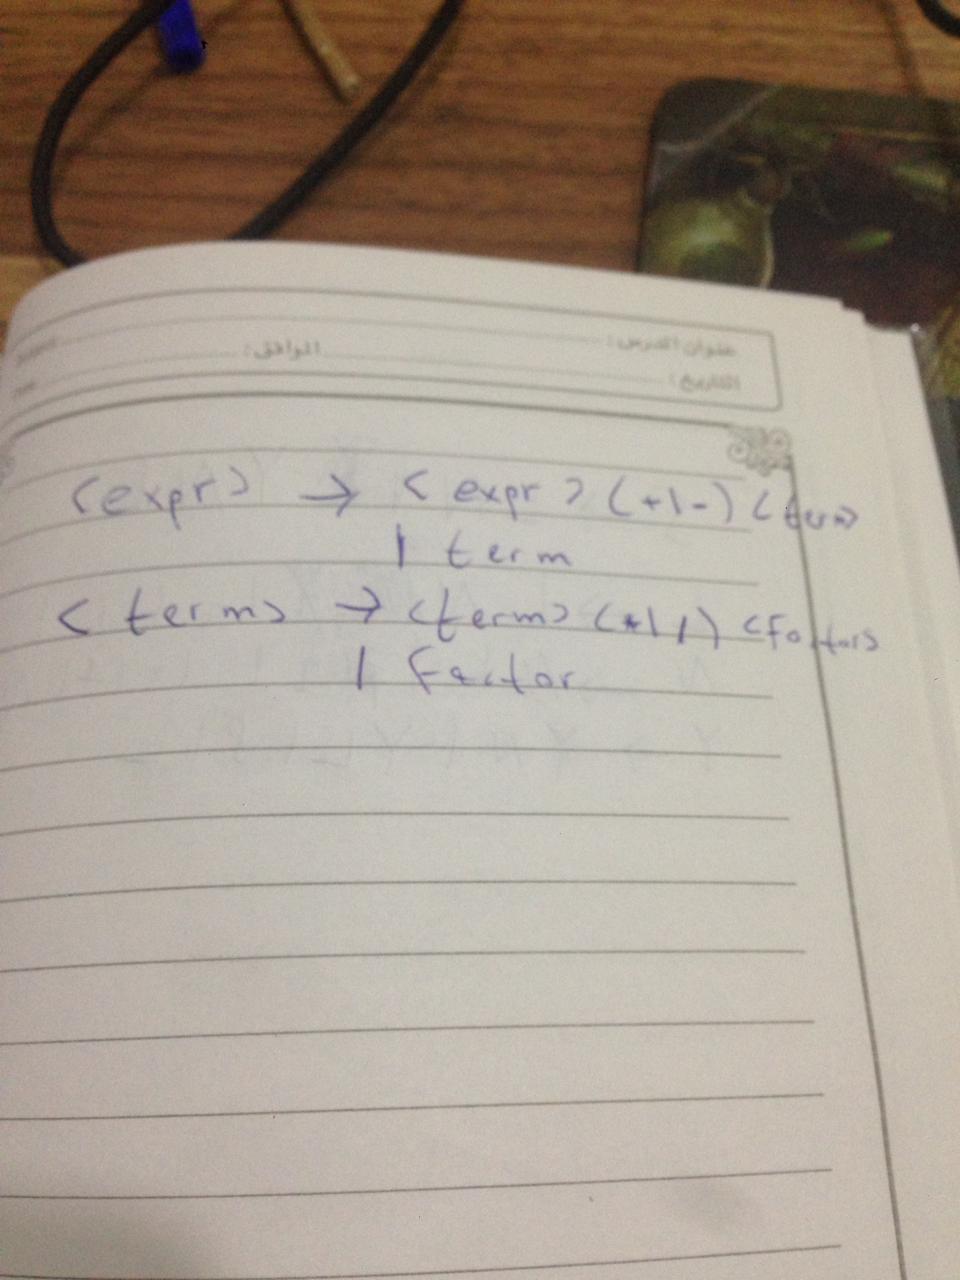 عنوان الدرس :
الموافق :
التاريخ :
<expr> → <expr> (+|-) <term>
| term
<term> → <term> (*|/) <factor>
| Factor